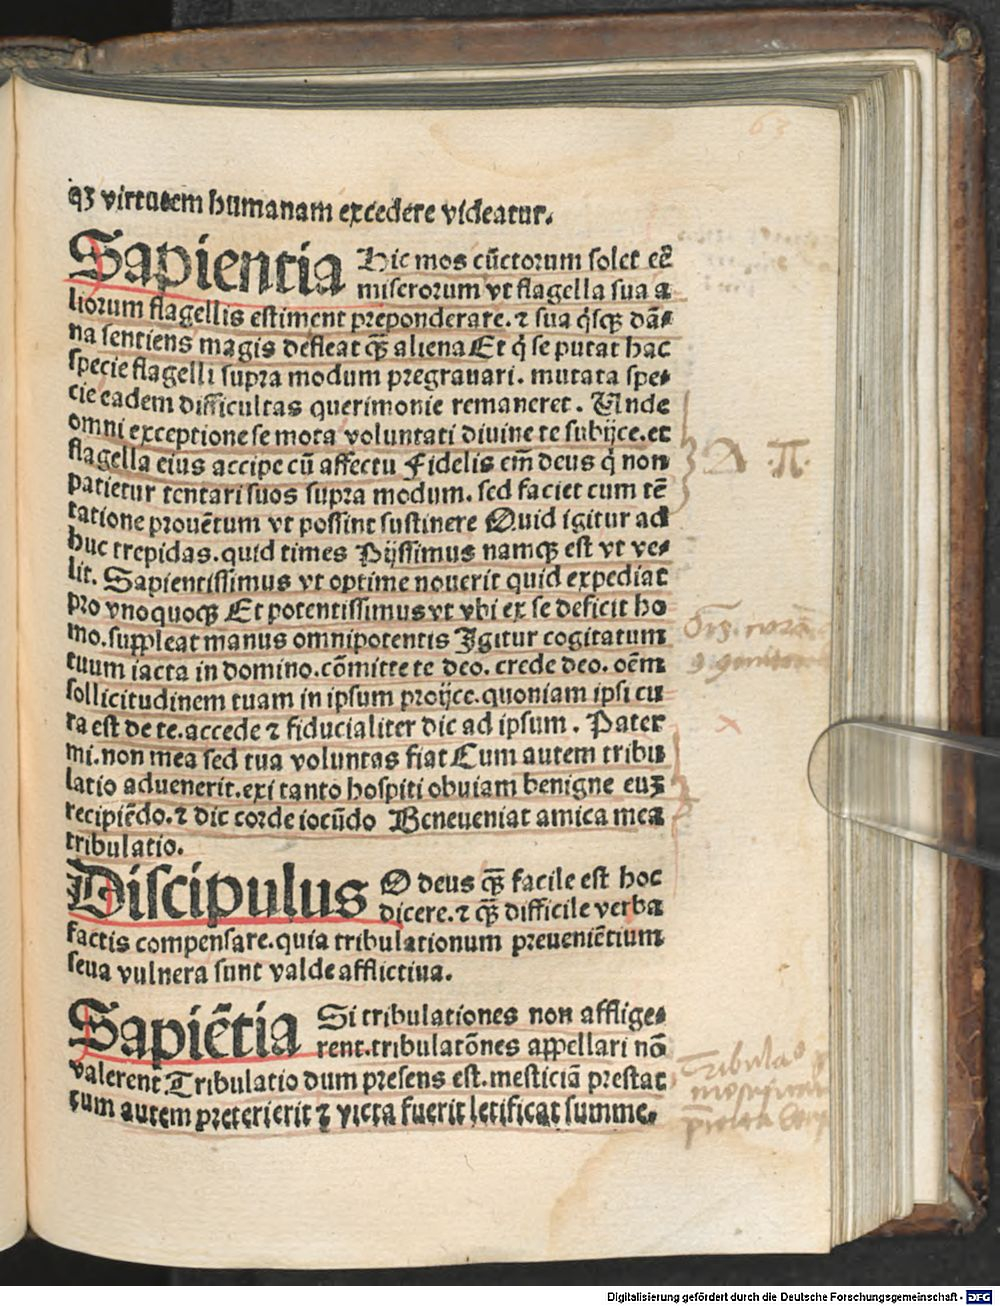 63
qꝫ virtutem humanam excedere videatur.
Sapientia Hic mos cūctorum solet eē
miserorum vt flagella sua a
liorum flagellis estiment preponderare. ⁊ sua q̇sqꝫ dā⸗
na sentiens magis defleat qꝫ̄ aliena Et q̇ se putat hac
specie flagelli supra modum pregrauari. mutata spe⸗
cie eadem difficultas querimonie remaneret. Unde
omni exceptione semota voluntati diuine te subijce. et
flagella eius accipe cū affectu Fidelis em̄ deus q̇ non
patietur tentari suos supra modum. sed faciet cum tē
tatione prouētum vt possint sustinere Quid igitur ad
huc trepidas. quid times Pijssimus namqꝫ est vt ve⸗
lit. Sapientissimus vt optime nouerit quid expediat
pro vnoquoqꝫ Et potentissimus vt vbi ex se deficit ho
mo. suppleat manus omnipotentis Igitur cogitatum
tuum iacta in domino. cōmitte te deo. crede deo. oēm
sollicitudinem tuam in ipsum proijce. quoniam ipsi cu
ra est de te. accede ⁊ fiducialiter dic ad ipsum. Pater
mi. non mea sed tua voluntas fiat Cum autem tribu
latio aduenerit. exi tanto hospiti obuiam benigne euꝫ
recipiēdo. ⁊ dic corde iocūdo Beneueniat amica mea
tribulatio.
Discipulus O deus qꝫ̄ facile est hoc
dicere. ⁊ qꝫ̄ difficile verba
factis compensare. quia tribulationum preueniētium
seua vulnera sunt valde afflictiua.
Sapiētia Si tribulationes non afflige⸗
rent. tribulatōnes appellari nō
valerent Tribulatio dum presens est. mesticiā prestat
cum autem preterierit ⁊ victa fuerit letificat summe.
Digitalisierung gefördert durch die Deutsche Forschungsgemeinschaft - DFG